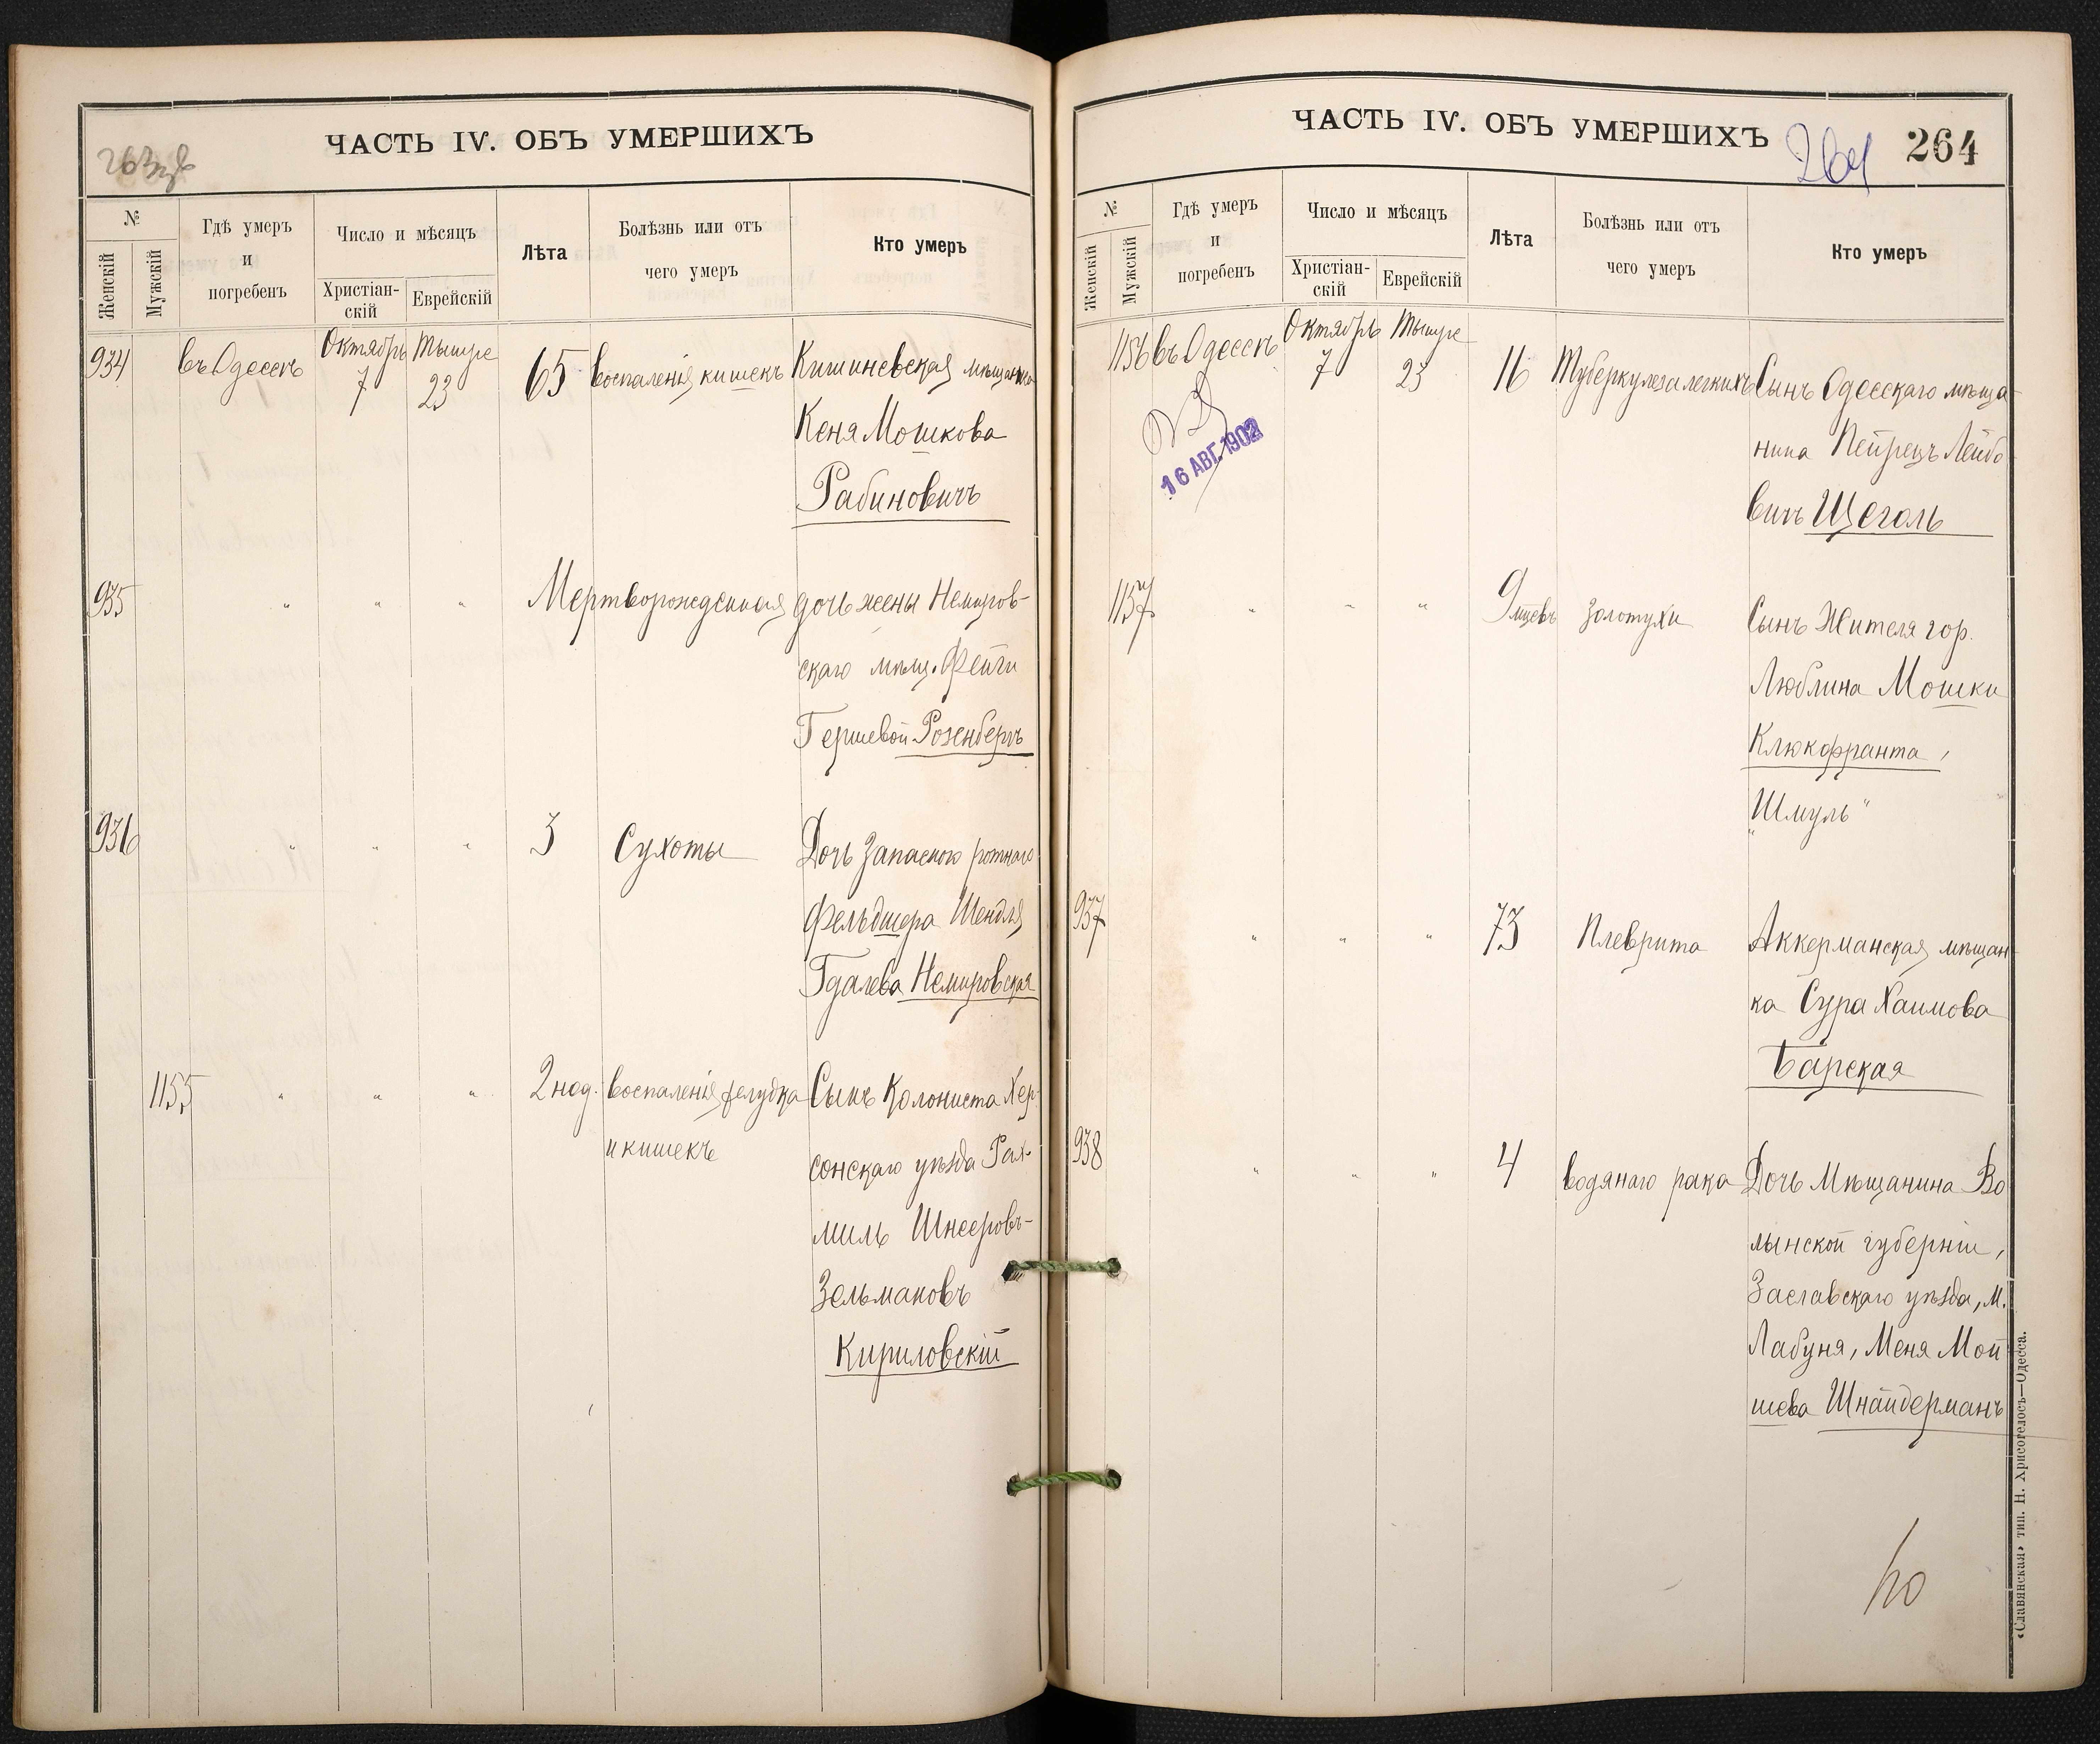 263 об
ЧАСТЬ IV. ОБЪ УМЕРШИХЪ
№
Женскій
Мужскій
Гдѣ умеръ
и
погребенъ
Число и мѣсяцъ
Христіан-
скій
Еврейскій
Лѣта
Болѣзнь или отъ
чего умеръ
Кто умеръ
934 въ Одессѣ Октябрь 7 Тышре 23 65 воспаленія кишекъ Кишиневская мѣщанка
Кеня Мошкова
Рабиновичъ
935 " " " Мертворожденная дочь жены Немиров-
скаго мѣщ. Фейги
Гершевой Розенбергъ
936 " " " 3 Сухоты Дочь Запаснаго ротнаго
фельдшера Шендля
Гдалева Немировская
1155 " " " 2 нед. воспаленія желудка Сынъ Колониста Хер-
и кишекъ
сонскаго уѣзда Рах-
миль Шнееровъ-
Зельмановъ
Кириловскій
ЧАСТЬ IV. ОБЪ УМЕРШИХЪ
264
264
№
Женскій
Мужскій
Гдѣ умеръ
и
погребенъ
Число и мѣсяцъ
Христіан-
скій
Еврейскій
Лѣта
Болѣзнь или отъ
чего умеръ
Кто умеръ
1156 въ Одессѣ Октябрь 7 Тышре 23 16 Туберкулеза легкихъ Сынъ Одесскаго мѣща-
нина Пейрецъ Лейбо-
вичъ Щеголь
16 АВГ. 1902
1157 " " " 9 мцевъ Золотухи Сынъ Жителя гор.
Люблина Мошки
Клюкфранта,
"Шмуль"
937 " " " 73 Плеврита Аккерманская мѣщан-
ка Сура Хаимова
Барская
938 " " " 4 водянаго рака Дочь Мѣщанина Во
лынской губерніи,
Заславскаго уѣзда, м.
Лабуня, Меня Мой
шева Шнайдерманъ
«Славянская» тип. Н. Хрисогелосъ—Одесса.